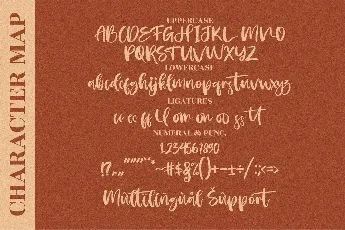 CHARACTER MAP
UPPERCASE
ABCDEFGHIJKL MNO
PQRSTUVWXYZ
LOWERCASE
abcdefghijklmnopqrstuvwxyz
LIGATURES
NUMERAL & PUNC.
1234567890
Multilingual Support